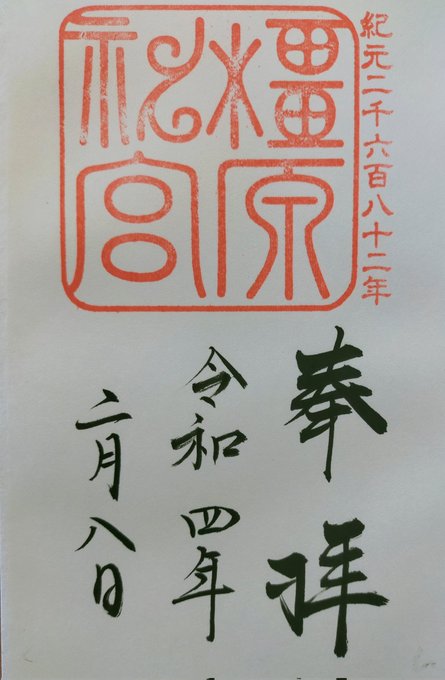 紀元二千六百八十二年
橿原
神宮
奉拝
令和四年
二月八日